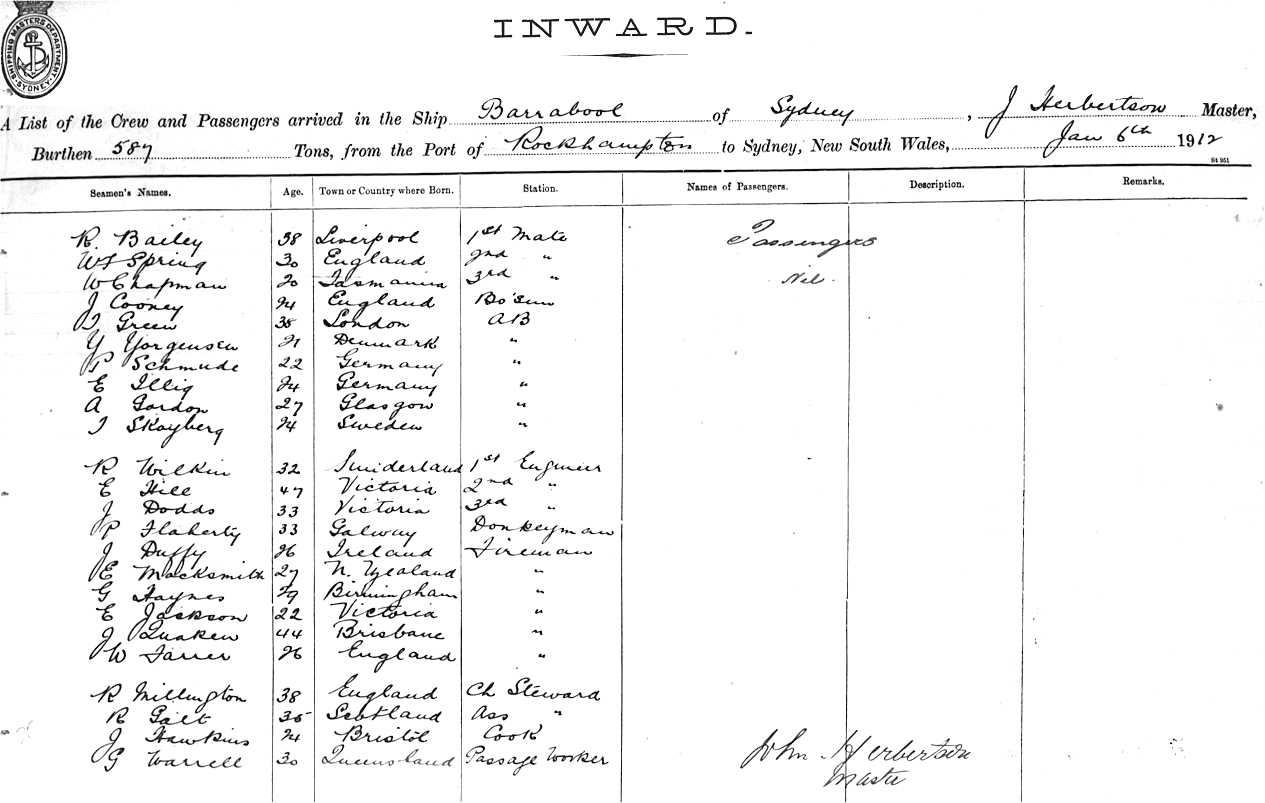 SHIPPING MASTERS DEPARTMENT SYDNEY
INWARD.
A List of the Crew and Passengers arrived in the Ship Barrabool of Sydney, J Herbertson Master,
Burthen 587 Tons, from the Port of Rockhampton to Sydney, New South Wales, Jan 6th 1912
St 951
Seamen's Names. Age. Town or Country where Born. Station. Names of Passengers. Description. Remarks.
R. Bailey 38 Liverpool 1st Mate Passengers
W J Spring 30 England 2nd "
W Chapman 20 Tasmania 3rd " Nil.
J Cooney 24 England Bo'sun
T Green 35 London AB
Y Yorgensen 21 Denmark "
P Schmude 22 Germany "
E Illig 24 Germany "
A Gordon 27 Glasgow "
T Skoyberg 24 Sweden "
R Wilkin 32 Sunderland 1st Engineer
E Hill 47 Victoria 2nd "
J Dodds 33 Victoria 3rd "
P Flaherty 33 Galway Donkeyman
J Duffy 26 Ireland Fireman
E Macksmith 27 N. Zealand "
G Haynes 29 Birmingham "
E Jackson 22 Victoria "
J Quaken 44 Brisbane "
W Farrer 26 England "
R Millington 38 England Ch Steward
R Galt 35 Scotland Ass "
J Hawkins 24 Bristol Cook
G Warrell 30 Queensland Passage Worker
John Herbertson
Master